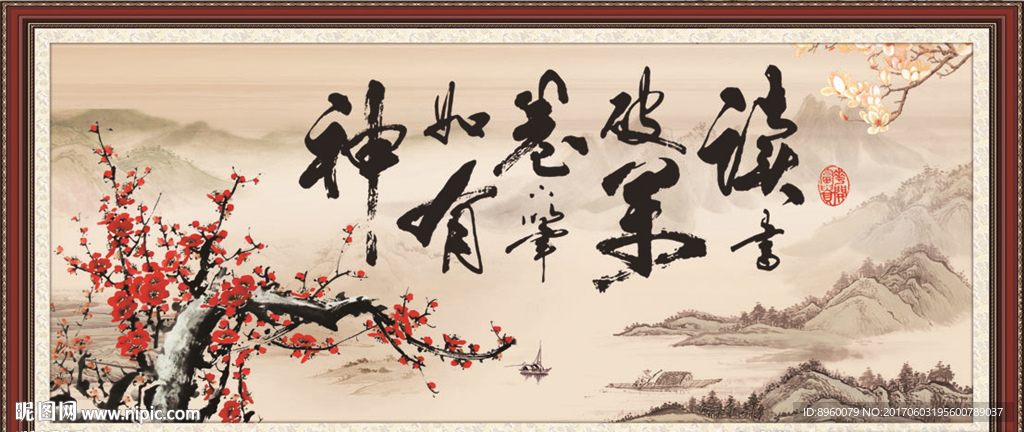 讀書
破萬
卷下筆
如有
神
昵图网 www.nipic.com
ID:8960079 NO:20170603195600789037